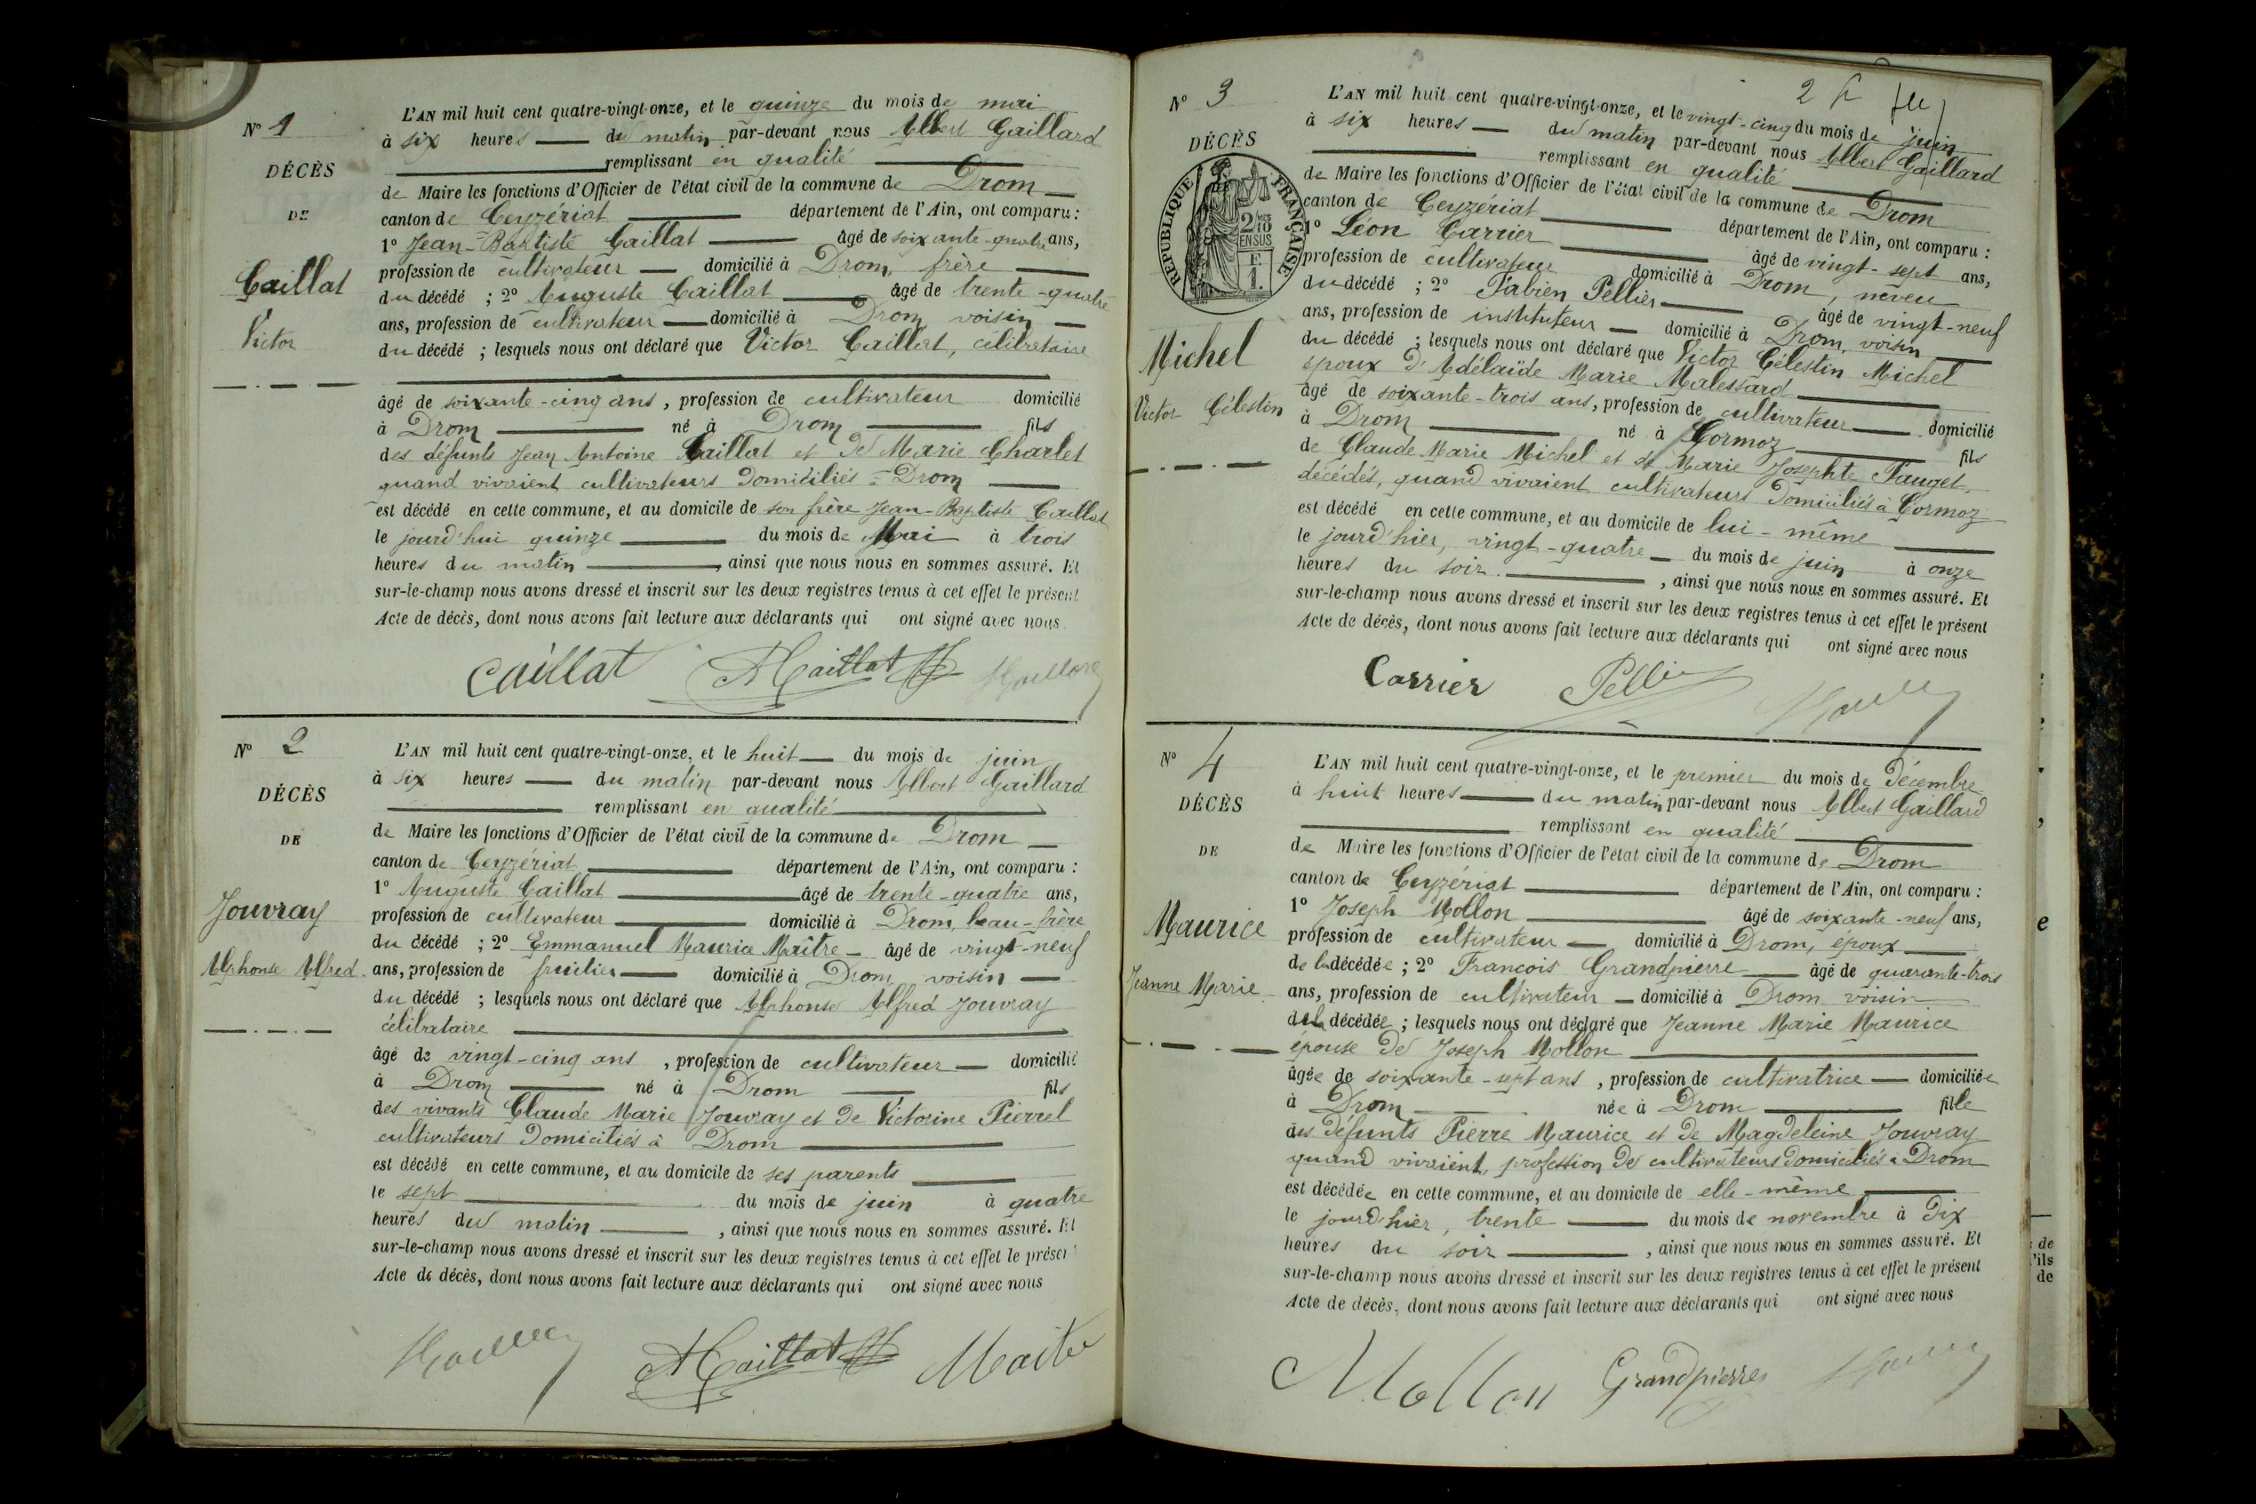 N° 1
DÉCÈS
DE
Caillat
Victor
L'AN mil huit cent quatre-vingt-onze, et le quinze du mois de mai
à six heures du matin par-devant nous Albert Gaillard
remplissant en qualité
de Maire les fonctions d'Officier de l'état civil de la commune de Drom
canton de Ceyzériat département de l'Ain, ont comparu :
1° Jean-Baptiste Caillat âgé de soixante-quatre ans,
profession de cultivateur domicilié à Drom, frère
du décédé ; 2° Auguste Caillat âgé de trente-quatre
ans, profession de cultivateur domicilié à Drom, voisin
du décédé ; lesquels nous ont déclaré que Victor Caillat, célibataire
âgé de soixante-cinq ans, profession de cultivateur domicilié
à Drom né à Drom fils
des défunts Jean Antoine Caillat et de Marie Charlet
quand vivaient cultivateurs domiciliés à Drom
est décédé en cette commune, et au domicile de son frère Jean-Baptiste Caillat
le jourd'hui quinze du mois de Mai à trois
heures du matin, ainsi que nous nous en sommes assuré. Et
sur-le-champ nous avons dressé et inscrit sur les deux registres tenus à cet effet le présent
Acte de décès, dont nous avons fait lecture aux déclarants qui ont signé avec nous
Caillat ACaillat AGaillard
N° 2
DÉCÈS
DE
Jouvray
Alphonse Alfred
L'AN mil huit cent quatre-vingt-onze, et le huit du mois de juin
à six heures du matin par-devant nous Albert Gaillard
remplissant en qualité
de Maire les fonctions d'Officier de l'état civil de la commune de Drom
canton de Ceyzériat département de l'Ain, ont comparu :
1° Auguste Caillat âgé de trente-quatre ans,
profession de cultivateur domicilié à Drom, beau-frère
du décédé ; 2° Emmanuel Maurice Maître âgé de vingt-neuf
ans, profession de domicilié à Drom voisin
du décédé ; lesquels nous ont déclaré que Alphonse Alfred Jouvray
célibataire
âgé de vingt-cinq ans, profession de cultivateur domicilié
à Drom né à Drom fils
des vivants Claude Marie Jouvray et de Victorine Pierrel
cultivateurs domiciliés à Drom
est décédé en cette commune, et au domicile de ses parents
le sept du mois de juin à quatre
heures du matin, ainsi que nous nous en sommes assuré. Et
sur-le-champ nous avons dressé et inscrit sur les deux registres tenus à cet effet le présent
Acte de décès, dont nous avons fait lecture aux déclarants qui ont signé avec nous
ACaillat Maitre
2
N° 3
DÉCÈS
RÉPUBLIQUE FRANÇAISE
2/10 EN SUS
F. 1.
Michel
Victor Célestin
L'AN mil huit cent quatre-vingt-onze, et le vingt-cinq du mois de juin
à six heures du matin par-devant nous Albert Gaillard
remplissant en qualité
de Maire les fonctions d'Officier de l'état civil de la commune de Drom
canton de Ceyzériat département de l'Ain, ont comparu :
1° Léon Carrier âgé de vingt-sept ans,
profession de cultivateur domicilié à Drom, neveu
du décédé ; 2° Fabien Pellier âgé de vingt-neuf
ans, profession de instituteur domicilié à Drom, voisin
du décédé ; lesquels nous ont déclaré que Victor Célestin Michel
époux d'Adélaïde Marie Malessard
âgé de soixante-trois ans, profession de cultivateur domicilié
à Drom né à Cormoz fils
de Claude Marie Michel et de Marie Josephte Fauget,
décédés, quand vivaient cultivateurs domiciliés à Cormoz
est décédé en cette commune, et au domicile de lui-même
le jourd'hier, vingt-quatre du mois de juin à onze
heures du soir, ainsi que nous nous en sommes assuré. Et
sur-le-champ nous avons dressé et inscrit sur les deux registres tenus à cet effet le présent
Acte de décès, dont nous avons fait lecture aux déclarants qui ont signé avec nous
Carrier Pellier
N° 4
DÉCÈS
DE
Maurice
Jeanne Marie
L'AN mil huit cent quatre-vingt-onze, et le premier du mois de Décembre
à huit heures du matin par-devant nous Albert Gaillard
remplissant en qualité
de Maire les fonctions d'Officier de l'état civil de la commune de Drom
canton de Ceyzériat département de l'Ain, ont comparu :
1° Joseph Mollon âgé de soixante-neuf ans,
profession de cultivateur domicilié à Drom, époux
de la décédée ; 2° François Grandpierre âgé de quarante-trois
ans, profession de cultivateur domicilié à Drom voisin
de la décédée ; lesquels nous ont déclaré que Jeanne Marie Maurice
épouse de Joseph Mollon
âgée de soixante-sept ans, profession de cultivatrice domiciliée
à Drom née à Drom fille
des défunts Pierre Maurice et de Magdeleine Jouvray
quand vivaient, profession de cultivateurs domiciliés à Drom
est décédée en cette commune, et au domicile de elle-même
le jourd'hier, trente du mois de novembre à dix
heures du soir, ainsi que nous nous en sommes assuré. Et
sur-le-champ nous avons dressé et inscrit sur les deux registres tenus à cet effet le présent
Acte de décès, dont nous avons fait lecture aux déclarants qui ont signé avec nous
Mollon Grandpierre